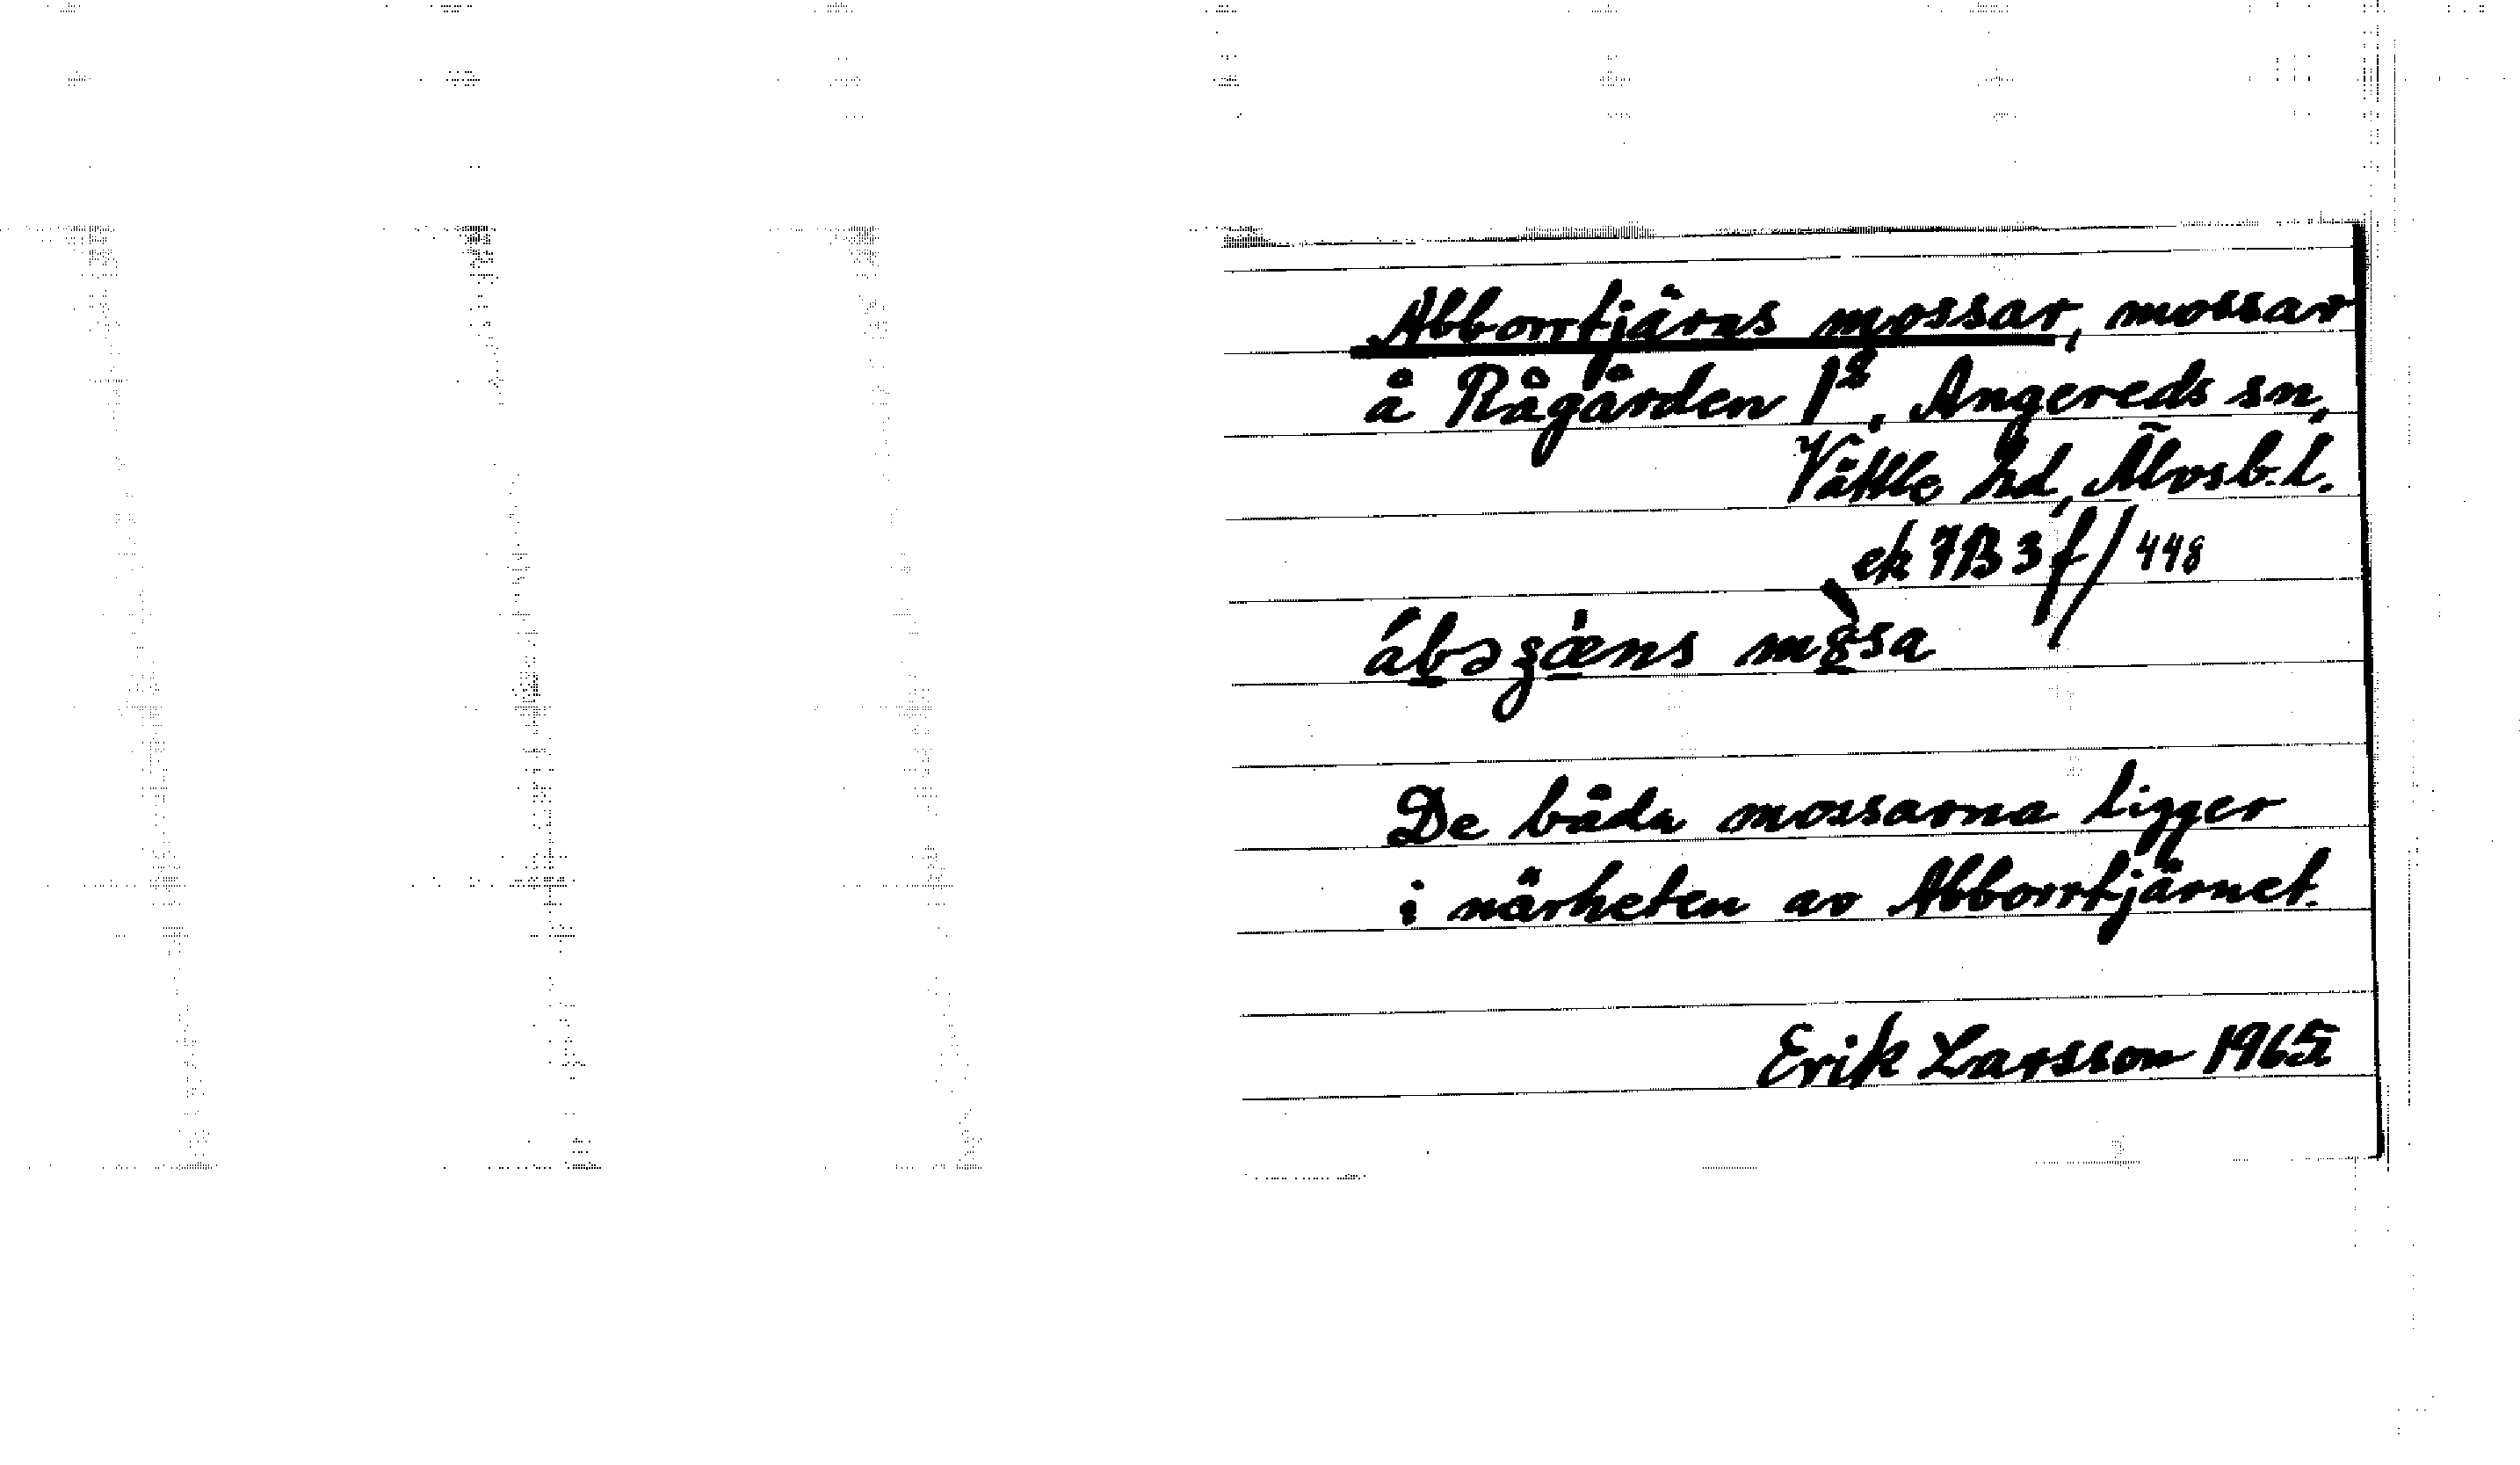 Abborrtjärns mossar, mossar
å Rågården 1², Angereds sn,
Vättle hd, Älvsb. l.
ek 7B 3f/448
De båda mossarna ligger
i närheten av Abborrtjärnet.
Erik Larsson 1965